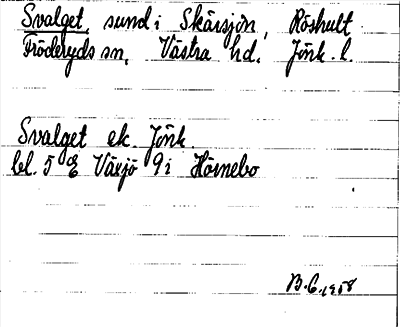 Svalget, sund i Skärsjön, Röshult
Fröderyds sn. Västra hd. Jönk. l.
Svalget ek. Jönk.
bl. 5 E Växjö 9 i Hörnebo
B.C. 1958